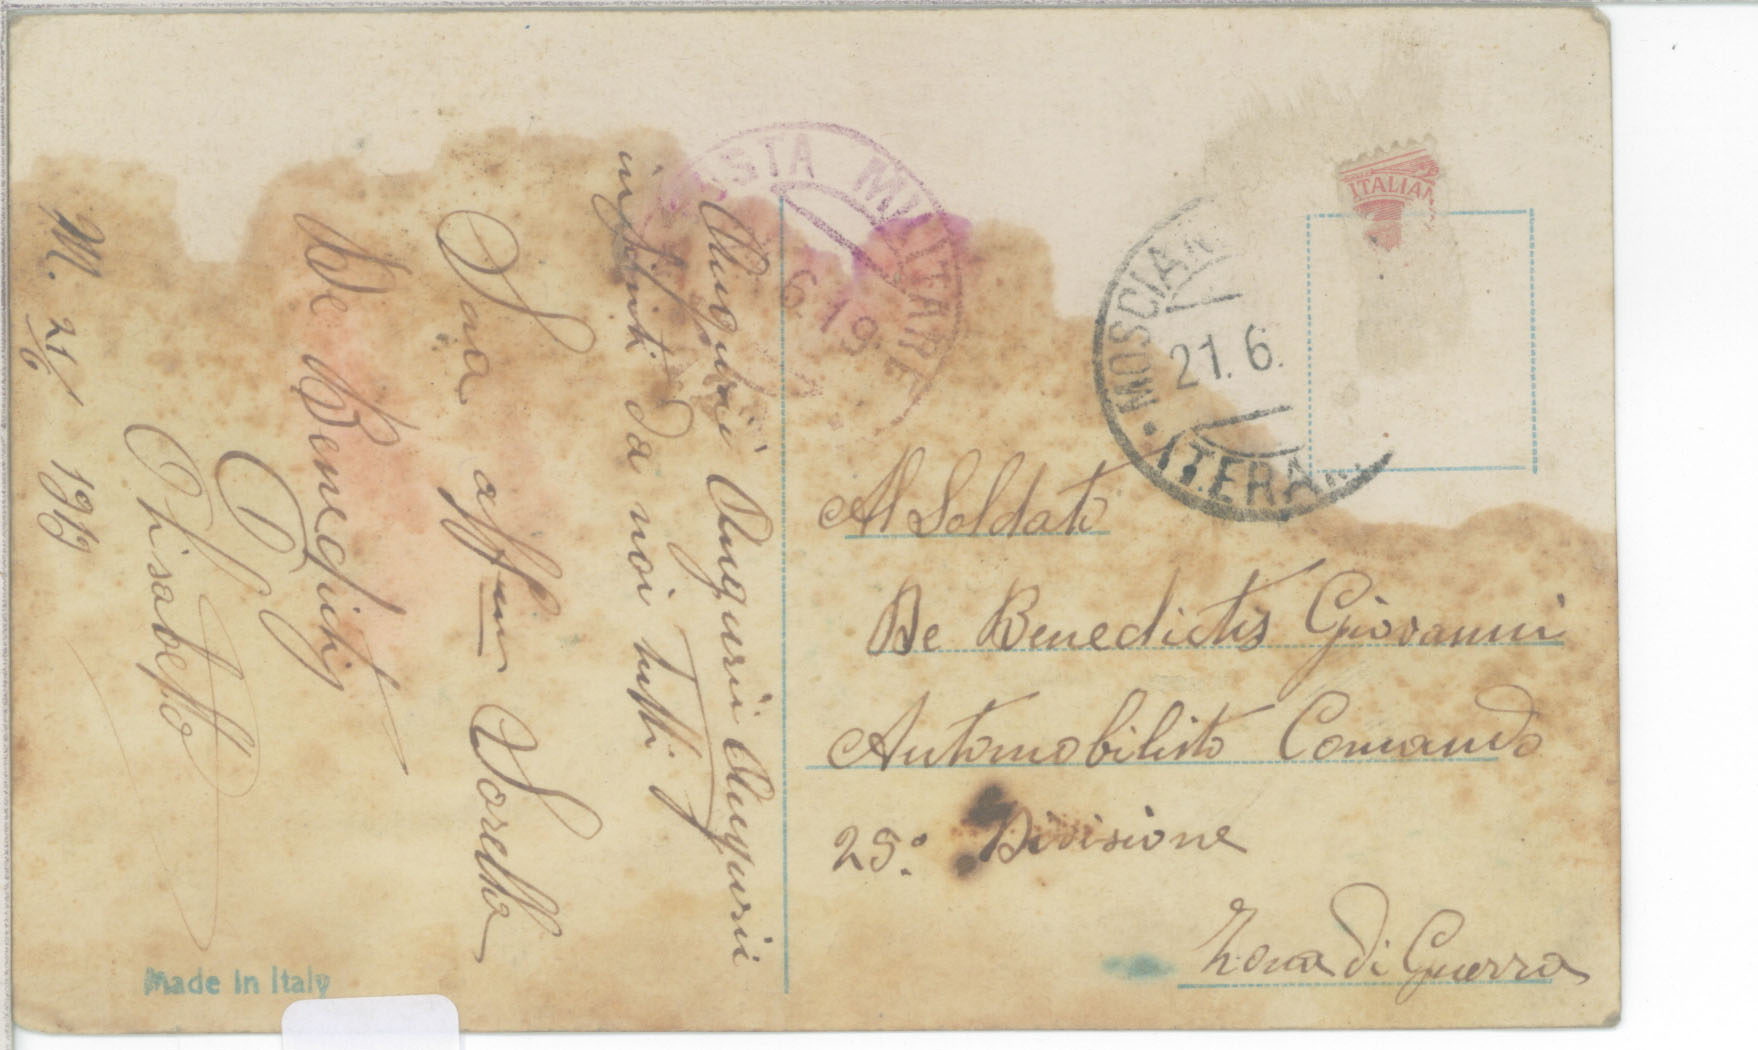 Auguri Auguri Auguri
infiniti da noi tutti
Sua affma Sorella
De Benedictis
D
Elisabetta
M. 21/6 1919
Made in Italy
POSTA MILITARE
6.19
MOSCIAN
21.6.
(TERA
ITALIAN
Al Soldato
De Benedictis Giovanni
Automobilista Comando
25° Divisione
Zona di Guerra